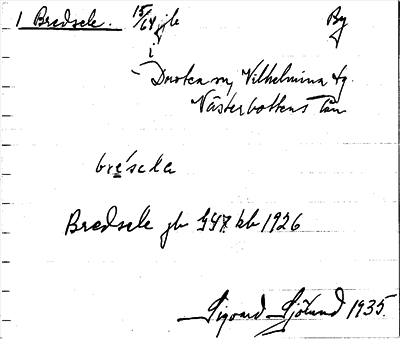 1 Bredsele. 15/64 jb By
i
Dorotea sn, Vilhelmina tg.
Västerbottens län
bre´sela
Bredsele jb 547 kb 1926
Sigvard Sjölund 1935.